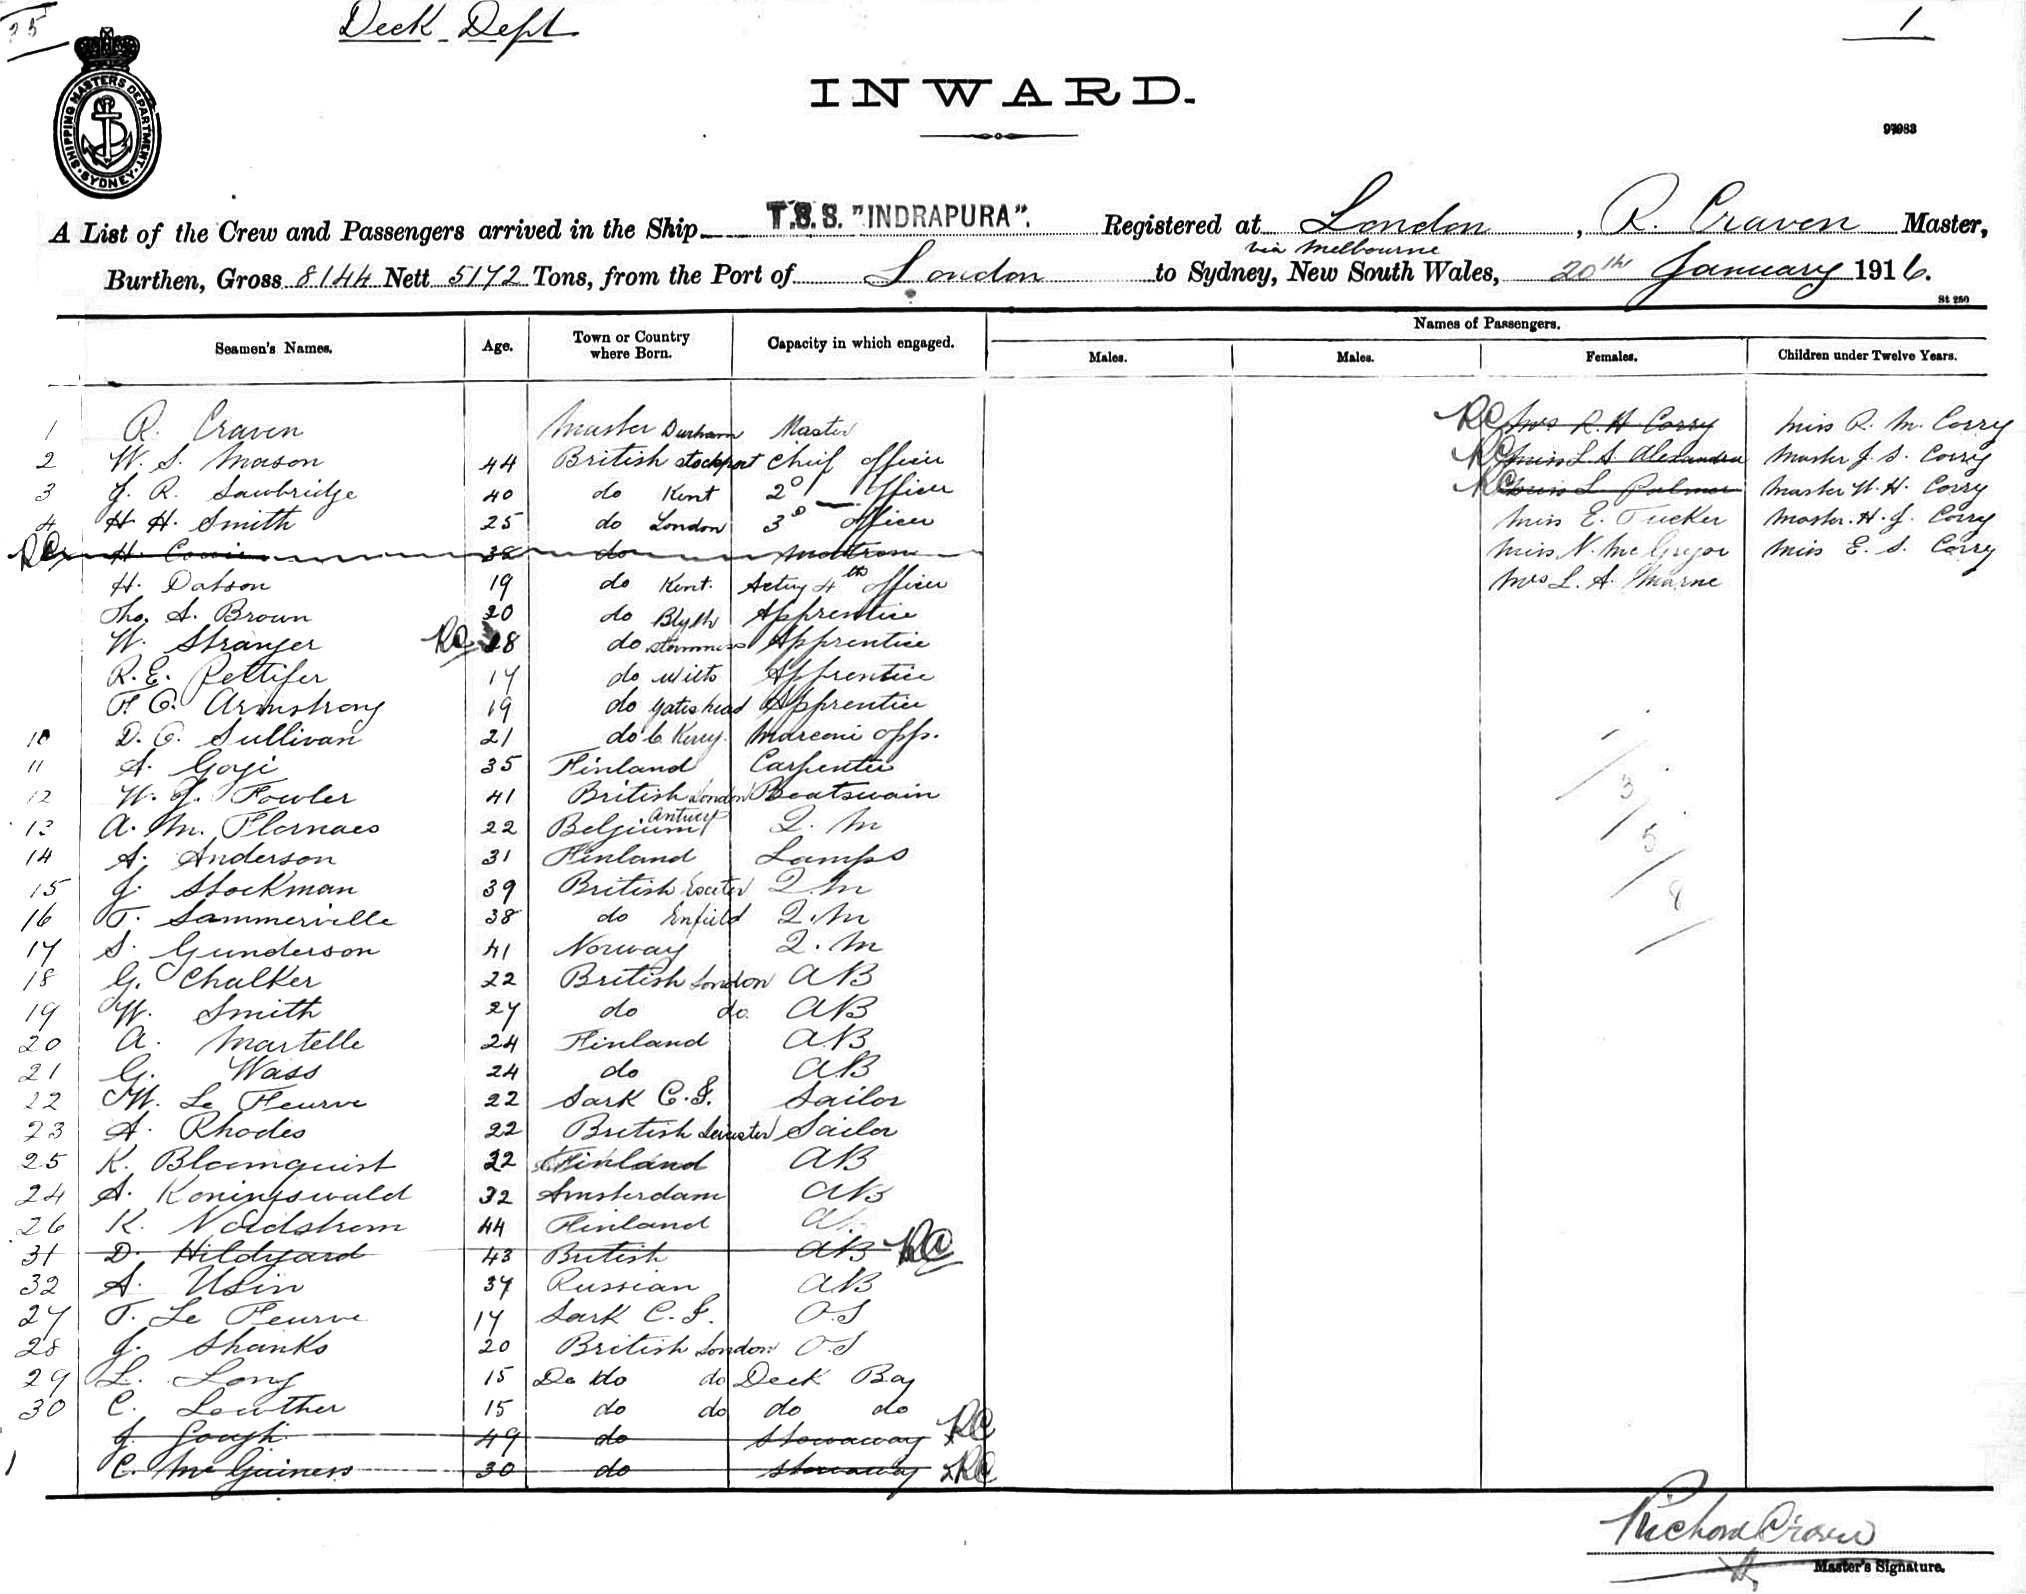 25
Deck Dept
1
SHIPPING MASTERS DEPARTMENT SYDNEY
INWARD.
97983
A List of the Crew and Passengers arrived in the Ship T.S.S. "INDRAPURA". Registered at London, R. Craven Master,
via Melbourne
Burthen, Gross 8144 Nett 5172 Tons, from the Port of London to Sydney, New South Wales, 20th January 1916.
St 250
Seamen's Names. Age. Town or Country where Born. Capacity in which engaged. Names of Passengers.
Males. Males. Females. Children under Twelve Years.
1 R. Craven Master Durham Master RC Mrs R H Corry Miss R. M. Corry
2 W. S. Mason 44 British Stockport Chief Officer RC Miss L. S. Alexandra Master J. S. Corry
3 J. R. Sawbridge 40 do Kent 2o Officer RC Miss L Palmer Master W. H. Corry
4 H H. Smith 25 do London 3o Officer Miss E. Tucker Master. H. J. Corry
RC H. Cowie 38 do Matron Miss N. McGregor Miss E. S. Corry
H. Dobson 19 do Kent. Acting 4th Officer Mrs L. A. Marne
Tho. A. Brown 20 do Blyth Apprentice
W. Stranger RC 18 do Apprentice
R. E. Pettifer 17 do Wilts Apprentice
F. C. Armstrong 19 do Gateshead Apprentice
10 D. C. Sullivan 21 do C Kerry. Marconi Opp.
11 A. Goyi 35 Finland Carpenter
12 W. J. Fowler 41 British London Boatswain
13 A. M. Flornaes 22 Belgium Antwerp Q. M
14 A. Anderson 31 Finland Lamps
15 J. Stockman 39 British Exeter Q. M
16 T. Sammerville 38 do Enfield Q. M
17 S. Gunderson 41 Norway Q. M
18 G. Chalker 22 British London AB
19 W. Smith 27 do do. AB
20 A. Martelle 24 Finland AB
21 G. Wass 24 do AB
22 W. Le Feurve 22 Sark C. I. Sailor
23 A. Rhodes 22 British Leicester Sailor
25 K. Bloomquist 22 Finland AB
24 A. Koningswald 32 Amsterdam AB
26 K. Nordstrom 44 Finland
31 D. Hildyard 43 British AB RC
32 A. Usin 37 Russian AB
27 T. Le Feurve 17 Sark C. I. O.S
28 J. Shanks 20 British London O.S
29 L. Long 15 Do do do Deck Boy
30 C. Lowther 15 do do do do
J. Gough 49 do Stowaway RC
1 C. McGuiness 30 do Stowaway RC
3
5
8
Richard Craven
Master's Signature.